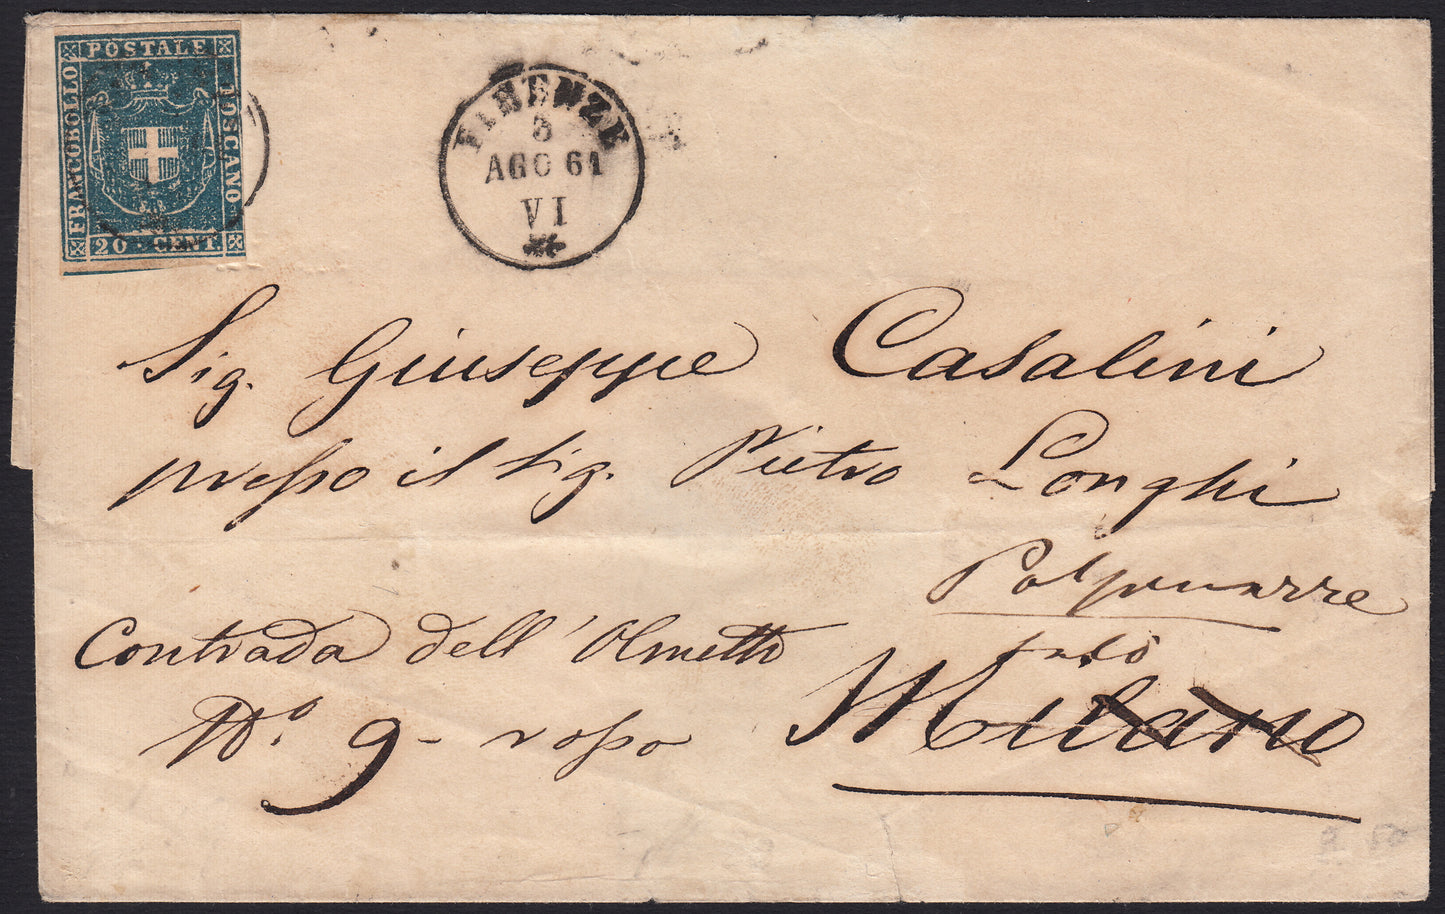 POSTALE
FRANCOBOLLO
TOSCANO
20 CENT.
FIRENZE
3
AGO 61
VI
Sig. Giuseppe Casalini
presso il Sig. Pietro Longhi
Contrada dell'Olmetto
No. 9 - rosso
Milano